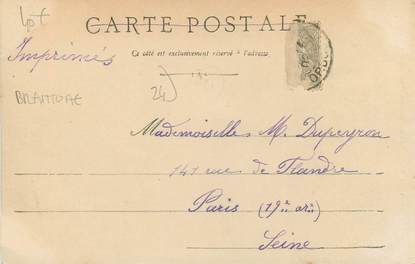 Lot
CARTE POSTALE
Imprimés
Ce côté est exclusivement réservé à l'adresse
BRANTOME
24
Mademoiselle M. Dupeyron
141 rue de Flandre
Paris (19e arr)
Seine